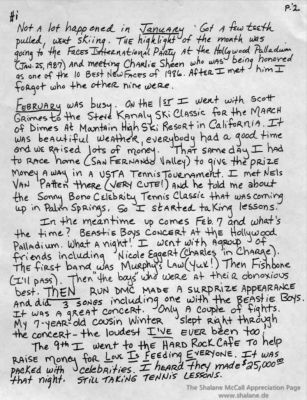 #1
P. 2
Not a lot happened in January. Got a few teeth
pulled, went skiing. The highlight of the month was
going to the Faces International Party at the Hollywood Palladium
(Jan. 25, 1987) and meeting Charlie Sheen who was being honored
as one of the 10 Best New Faces of 1986. After I met him I
forgot who the other nine were.
February was busy. On the 1st I went with Scott
Grimes to the Steve Kanaly Ski Classic for the March
of Dimes at Mountain High Ski Resort in California. It
was beautiful weather, everybody had a good time
and we raised lots of money. That same day I had
to race home (San Fernando Valley) to give the prize
money away in a USTA Tennis Tournament. I met Nels
Van Patten there (very cute!) and he told me about
the Sonny Bono Celebrity Tennis Classic that was coming
up in Palm Springs. So I started taking lessons.
In the meantime up comes Feb. 7 and what's
the time? Beastie Boys Concert at the Hollywood
Palladium. What a night! I went with a group of
friends including Nicole Eggert (Charles in Charge).
The first band was Murphy's Law (yuk!) Then Fishbone
(I'll pass). Then the boys who were at their obnoxious
best. THEN Run DMC made a surprise appearance
and did 3 songs including one with the Beastie Boys.
It was a great concert. Only a couple of fights.
My 7-year old cousin Winter slept right through
the concert - the loudest I've ever been too!
The 9th I went to the Hard Rock Cafe to help
raise money for Love Is Feeding Everyone. It was
packed with celebrities. I heard they made $25,000.00
that night. Still taking tennis lessons.
The Shalane McCall Appreciation Page
www.shalane.de